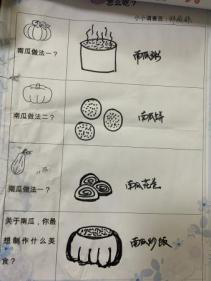 怎么吃？
小小调查员：
南瓜做法一？
南瓜粥
南瓜做法二？
南瓜饼
南瓜做法一？
南瓜花卷
关于南瓜，你最
想制作什么美
食？
南瓜炒饭